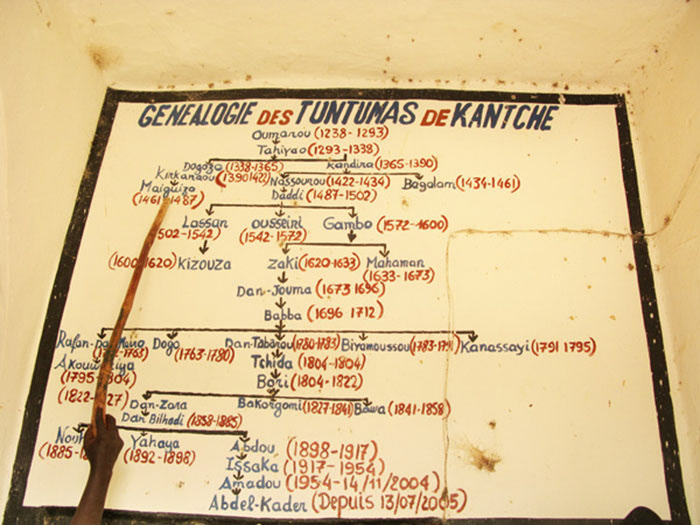 GENEALOGIE DES TUNTUMAS DE KANTCHE
Oumarou (1238-1293)
Tahiyao (1293-1338)
Dogozo (1338-1365) Kandira (1365-1390)
Kirkandou (1390 1422) Nassourou (1422-1434) Bagalam (1434-1461)
Maiguizo Daddi (1487-1502)
(1461-1487)
Lassan ousseini Gambo (1572-1600)
1502-1542) (1542-1572)
(1600 1620) Kizouza Zaki (1620-1633) Mahaman
(1633-1673)
Dan-Jouma (1673 1696)
Babba (1696-1712)
Rafan- Dogo Dan-Tabarou (1780-1783) Biramoussou (1783-1791) Kanassayi (1791 1795)
1763) (1763-1780)
Tchida (1804-1804)
(1795-1804) Bori (1804-1822)
(1822-1827) Dan-Zara Bakorgomi (1827-1841) Bawa (1841-1858)
Dan Bilhadi (1858-1885)
Yahaya Abdou (1898-1917)
(1885- (1892-1898)
Issaka (1917-1954)
Amadou (1954-14/11/2004)
Abdel-Kader (Depuis 13/07/2005)